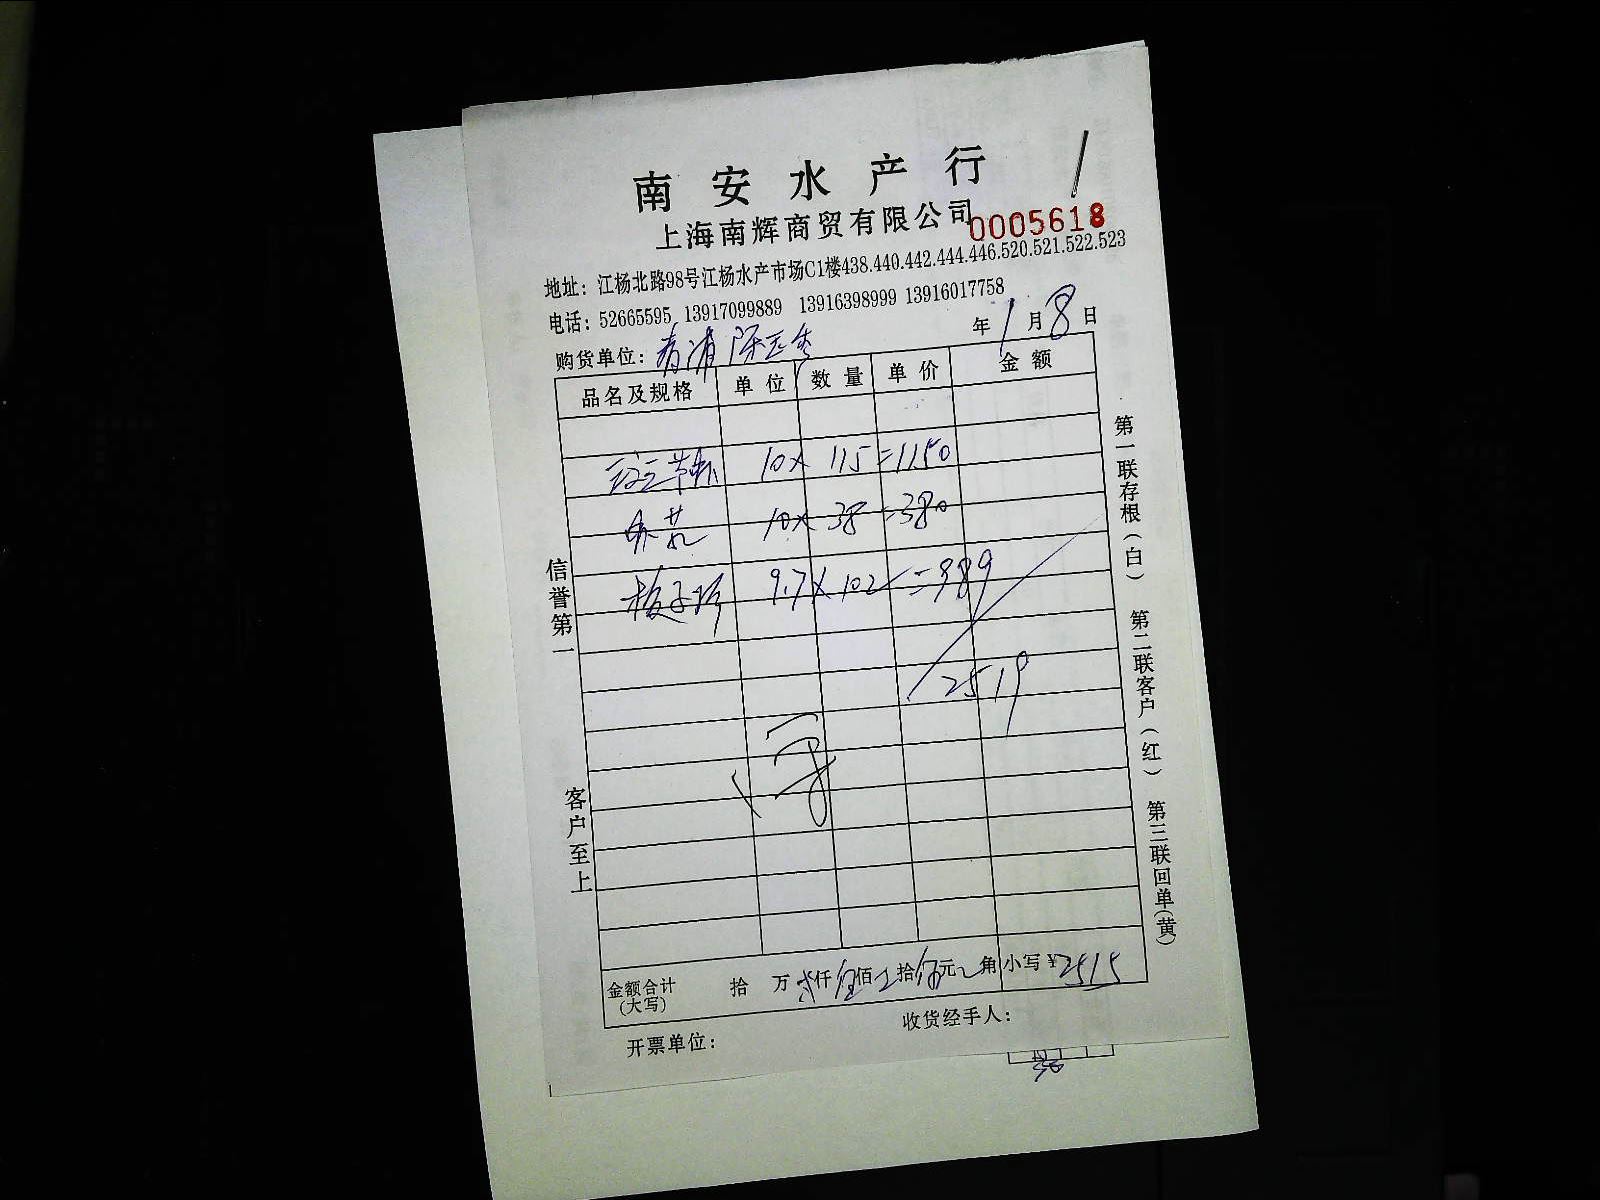 南安水产行
上海南辉商贸有限公司
0005618
地址：江杨北路98号江杨水产市场C1楼438.440.442.444.446.520.521.522.523
电话：52665595 13917099889 13916398999 13916017758
购货单位：
年1月8日
品名及规格 单位 数量 单价 金额
10× 115=1150
10× 38=380
9.7×102=989
2519
金额合计(大写) 拾 万 仟 佰 拾 元 角 小写¥2515
开票单位：
收货经手人：
信誉第一
客户至上
第一联存根(白) 第二联客户(红) 第三联回单(黄)